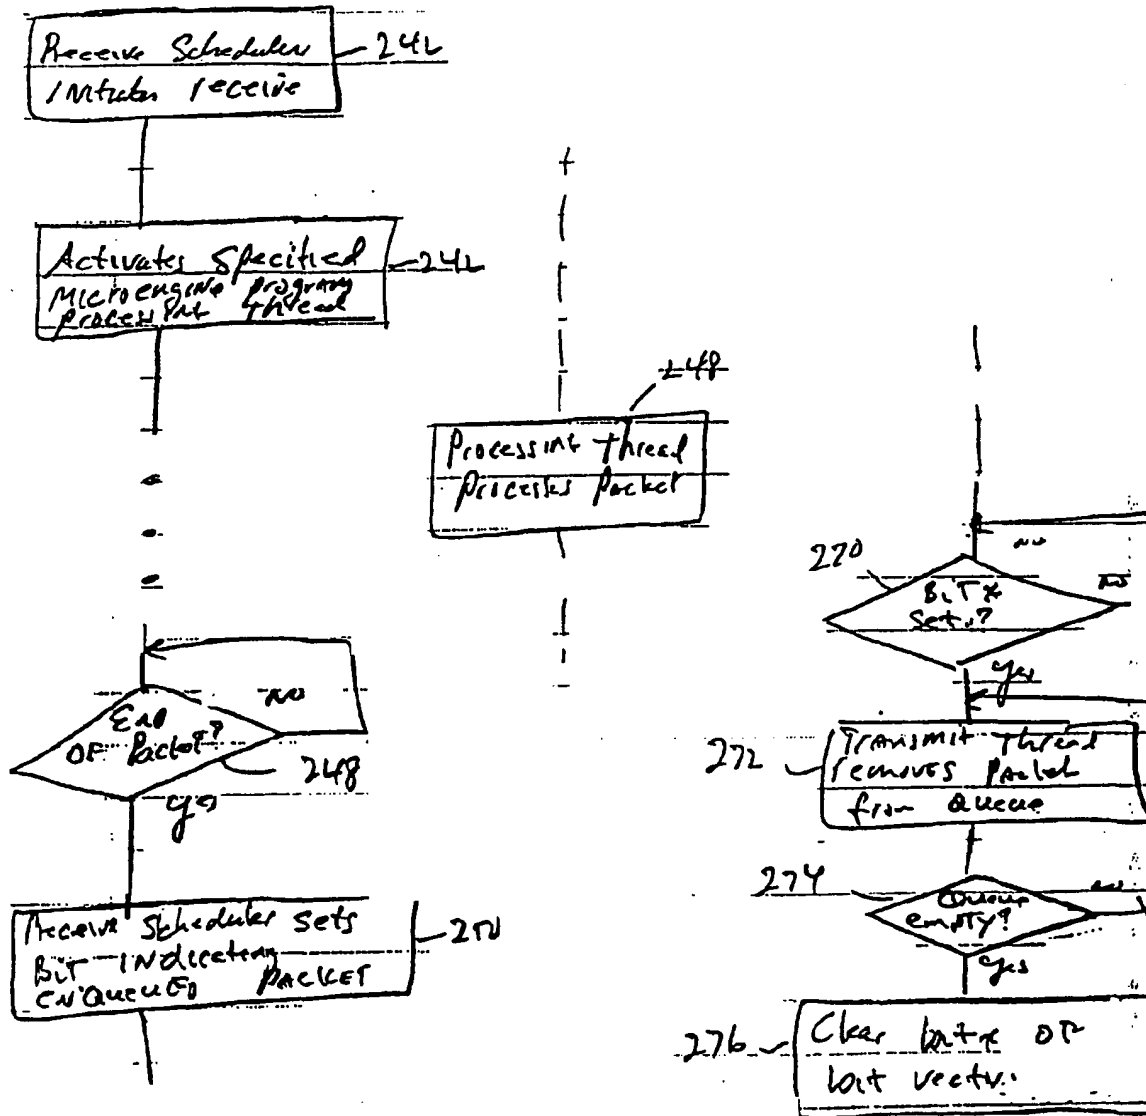 Receive Scheduler
Initiates receive
242
Activates Specified
Microengine program
processing thread
242
248
Processing thread
Processes Packet
End
OF Packet?
NO
248
yes
Receive Scheduler Sets
BIT INDICATING
ENQUEUED PACKET
250
NO
270
BIT x
Set?
NO
yes
272
Transmit thread
removes Packet
from Queue
274
Queue
empty?
NO
yes
276
Clear bit x OF
bit vector